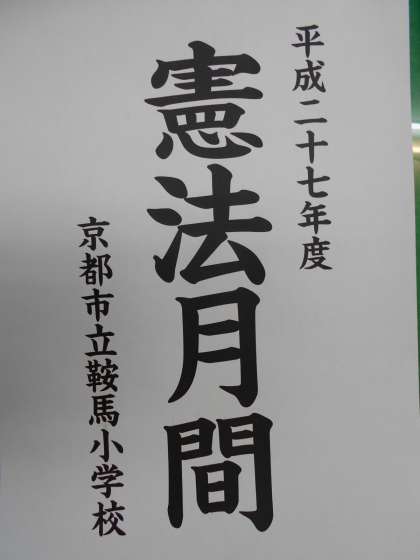 平成二十七年度
憲法月間
京都市立鞍馬小学校